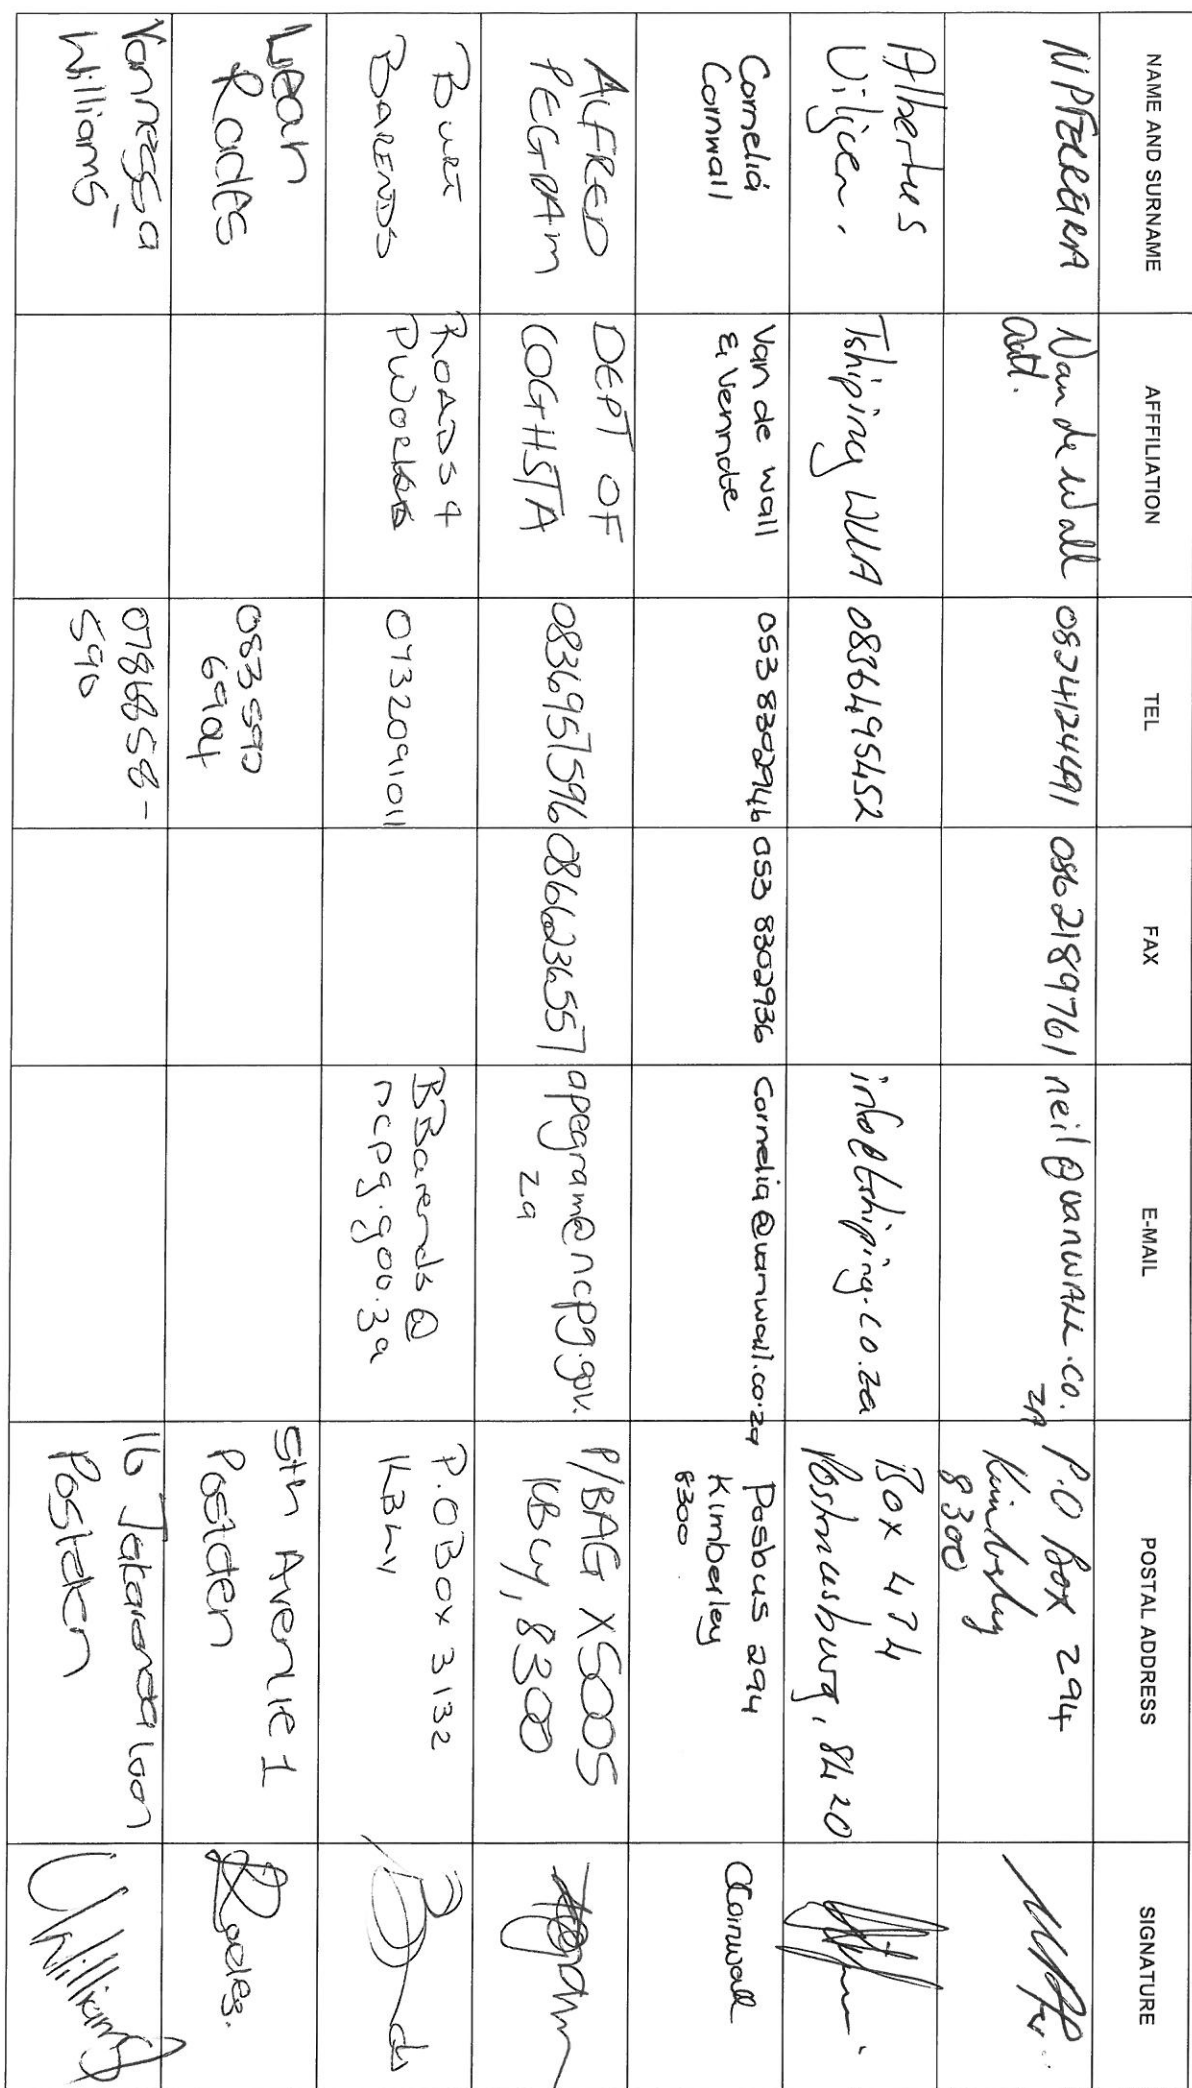 NAME AND SURNAME
AFFFILIATION
TEL
FAX
E-MAIL
POSTAL ADDRESS
SIGNATURE
Van de Wall
0824124491
0862189761
neil@vanwall.co.
za
P.O Box 294
8300
Albertus
Viljoen.
Tshiping WUA
0836495452
info@tshiping.co.za
Box 474
Postmasburg, 8420
Cornelia
Cornwall
Van de wall
& Vennote
053 8302946
053 8302936
Cornelia@vanwall.co.za
Posbus 294
Kimberley
8300
CCornwall
ALFRED
PEGRAM
DEPT OF
COGHSTA
0836957596
0866236557
apegram@ncpg.gov.
za
P/BAG X5005
KBY, 8300
BURT
BARENDS
ROADS &
PWORKS
0732091011
BBarends@
ncpg.gov.za
P.O Box 3132
KBY
Lean
Rodes
083 590
6904
5th Avenue 1
Postden
Vannessa
Williams
07868558-
590
16 Jakarandalaan
Postden
Williams